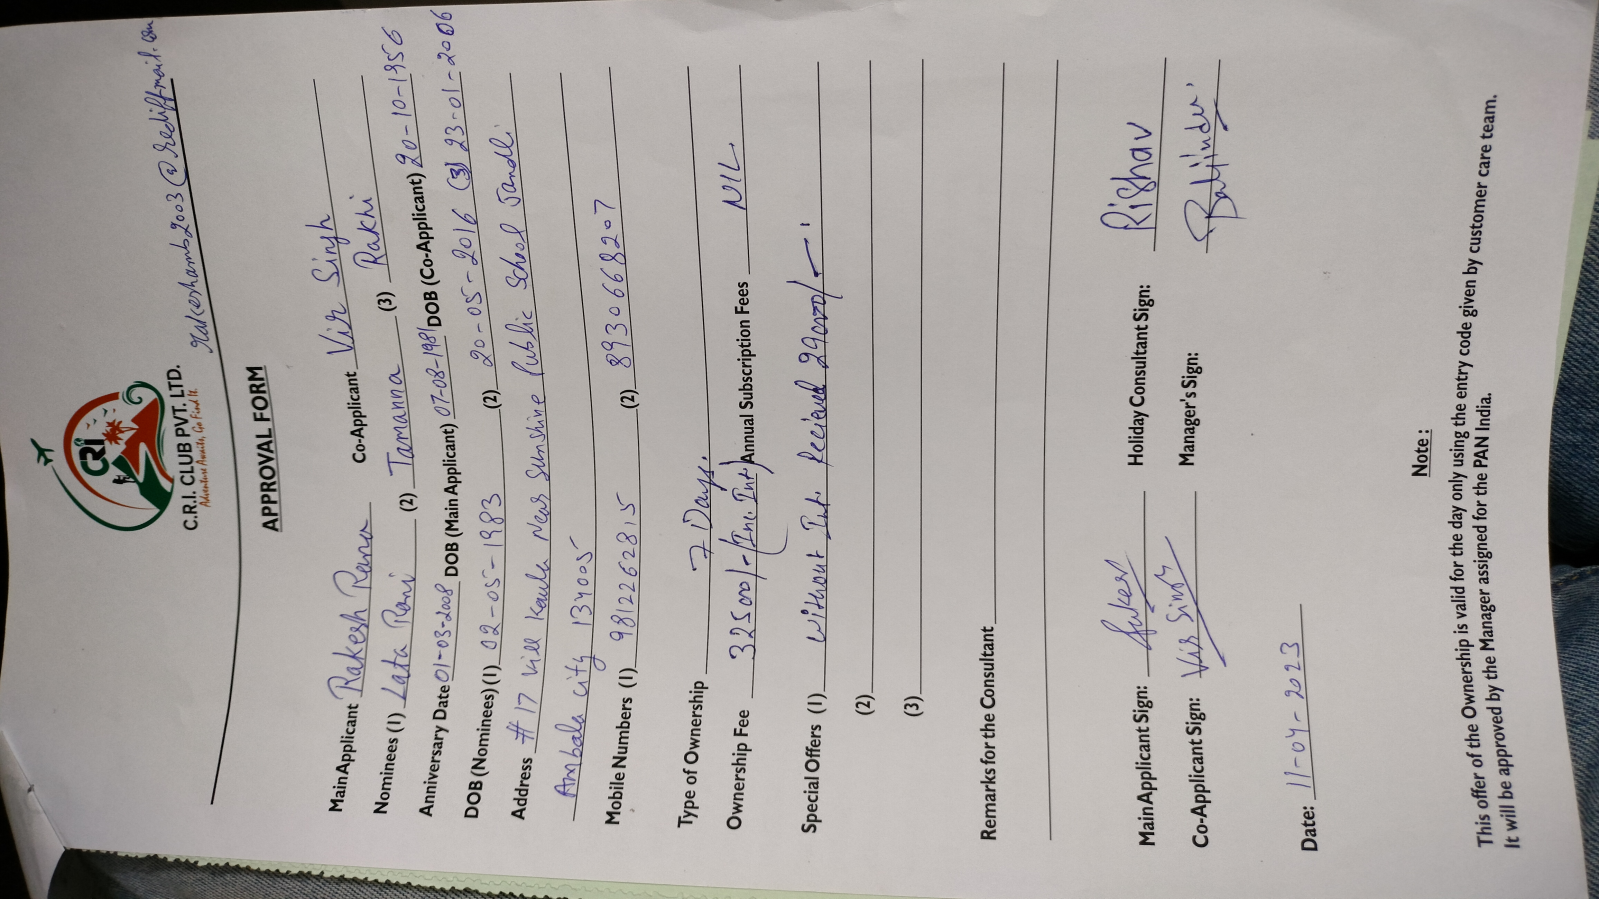 CRI
C.R.I. CLUB PVT. LTD.
Adventure Awaits, Go Find It.
rakeshamb2003@rediffmail.com
APPROVAL FORM
Main Applicant Rakesh Rana Co-Applicant Vir Singh
Nominees (1) Lata Rani (2) Tamanna (3) Rakhi
Anniversary Date 01-03-2008 DOB (Main Applicant) 07-08-1981 DOB (Co-Applicant) 20-10-1956
DOB (Nominees) (1) 02-05-1983 (2) 20-05-2016 (3) 23-01-2006
Address # 17 Vill Kaula Near Sunshine Public School Jandli
Ambala City 134005
Mobile Numbers (1) 9812262815 (2) 8930668207
Type of Ownership 7 Days.
Ownership Fee 32500/- (Inc. Int) Annual Subscription Fees NIL.
Special Offers (1) Without Int. Recieved 29000/-
(2)
(3)
Remarks for the Consultant
Main Applicant Sign: Holiday Consultant Sign: Rishav
Co-Applicant Sign: Vir Singh Manager's Sign:
Date: 11-04-2023
Note :
This offer of the Ownership is valid for the day only using the entry code given by customer care team.
It will be approved by the Manager assigned for the PAN India.